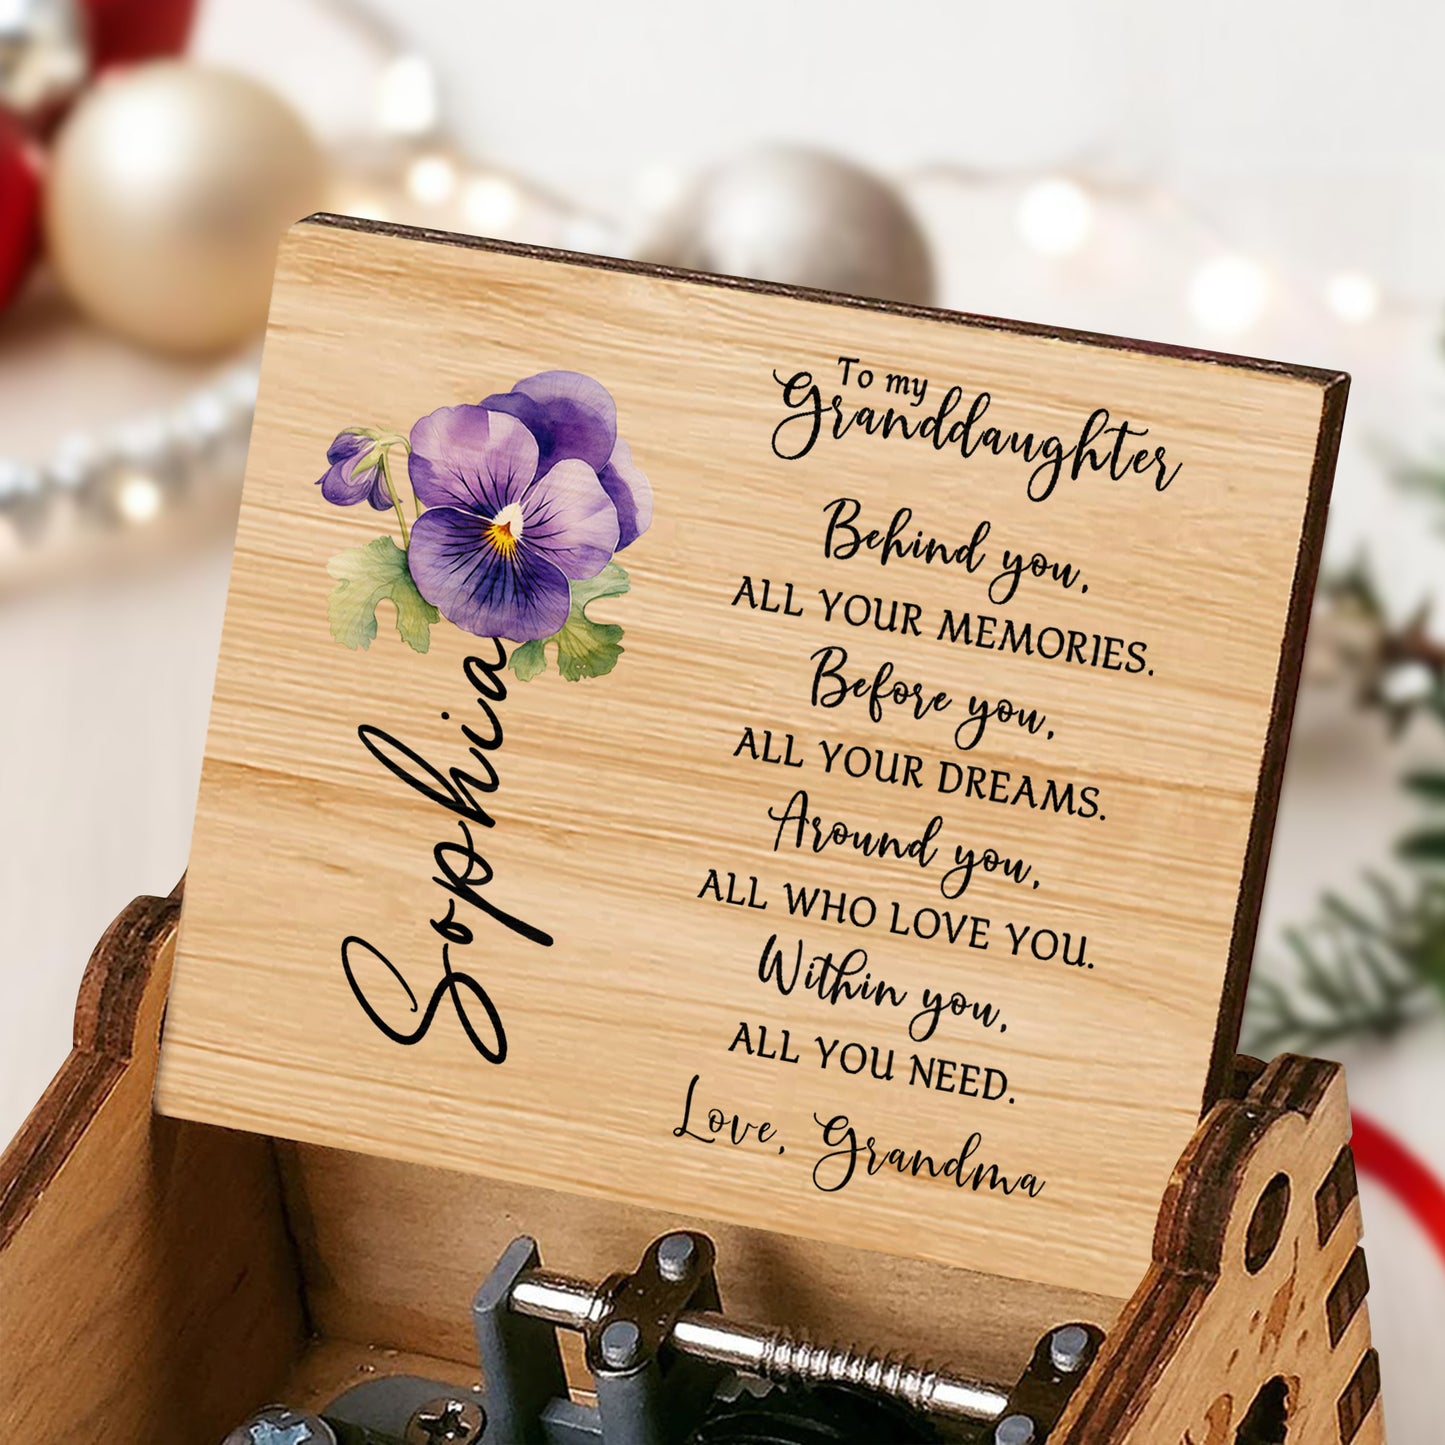 Sophia
To my
Granddaughter
Behind you,
ALL YOUR MEMORIES.
Before you,
ALL YOUR DREAMS.
Around you,
ALL WHO LOVE YOU.
Within you,
ALL YOU NEED.
Love, Grandma